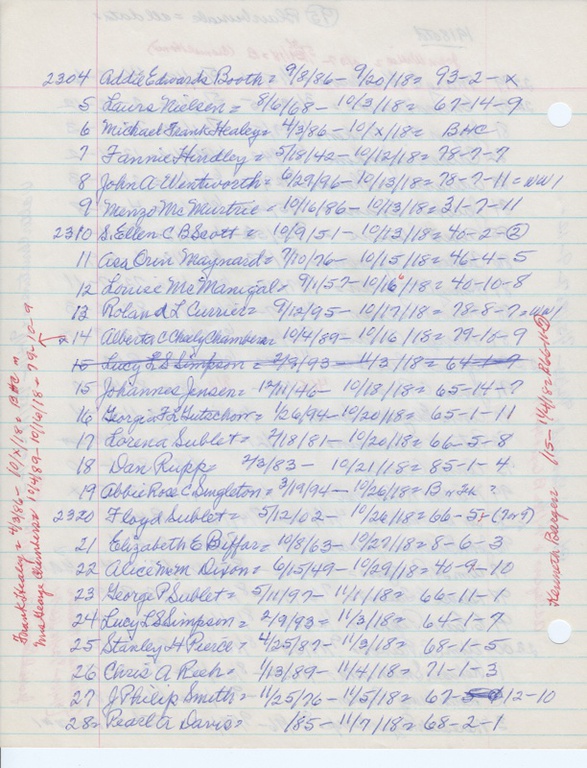 2304 Addie Edwards Booth = 9/8/86 - 9/20/18 = 93-2-x
5 Laura Nielsen = 8/6/68 - 10/3/18 = 67-14-9
6 Michael Frank Healey = 4/3/86 - 10/x/18 = BHC
7 Fannie Hindley = 5/18/42 - 10/12/18 = 78-7-7
8 John A Wentworth = 6/29/96 - 10/13/18 = 78-7-11 = WW1
9 Menzo McMurtrie = 10/16/86 - 10/13/18 = 31-7-11
2310 S. Ellen C B Scott = 10/9/51 - 10/13/18 = 40-2-2
11 Asa Orin Maynard = 7/10/76 - 10/15/18 = 46-4-5
12 Louise McManigal = 9/1/57 - 10/16/18 = 40-10-8
13 Roland L Currier = 9/12/95 - 10/17/18 = 78-8-7 = WW1
14 Alberta C Cheely Chambers 10/4/89 - 10/16/18 = 79-10-9
15 Lucy L S Simpson = 2/9/93 - 11/3/18 = 64-1-7
15 Johannes Jensen = 12/11/46 - 10/18/18 = 65-14-7
16 Georgia F L Hutschon = 1/26/94 - 10/20/18 = 65-1-11
17 Lorena Sublet = 2/18/81 - 10/20/18 = 66-5-8
18 Dan Rupp 2/3/83 - 10/21/18 = 85-1-4
19 Abbie Rose C Singleton = 3/19/94 - 10/26/18 =
2320 Floyd Sublet = 5/12/02 - 10/26/18 = 66-5
21 Elizabeth E Biffar = 10/8/63 - 10/27/18 = 8-6-3
22 Alice M Dixon = 6/15/49 - 10/29/18 = 40-9-10
23 George P Sublet = 5/11/97 - 11/1/18 = 66-11-1
24 Lucy L S Simpson = 2/9/93 - 11/3/18 = 64-1-7
25 Stanley H Pierce = 4/25/87 - 11/3/18 = 68-1-5
26 Chris A Reeh = 1/13/89 - 11/4/18 = 71-1-3
27 J Philip Smith = 11/25/76 - 11/5/18 = 67-12-10
28 = Pearl A Davis = /85 - 11/7/18 = 68-2-1
Frank Healey = 4/3/86 - 10/x/18 = BHC
Chambers = 10/4/89 - 10/16/18 = 79-10-9
Kenneth Bargen